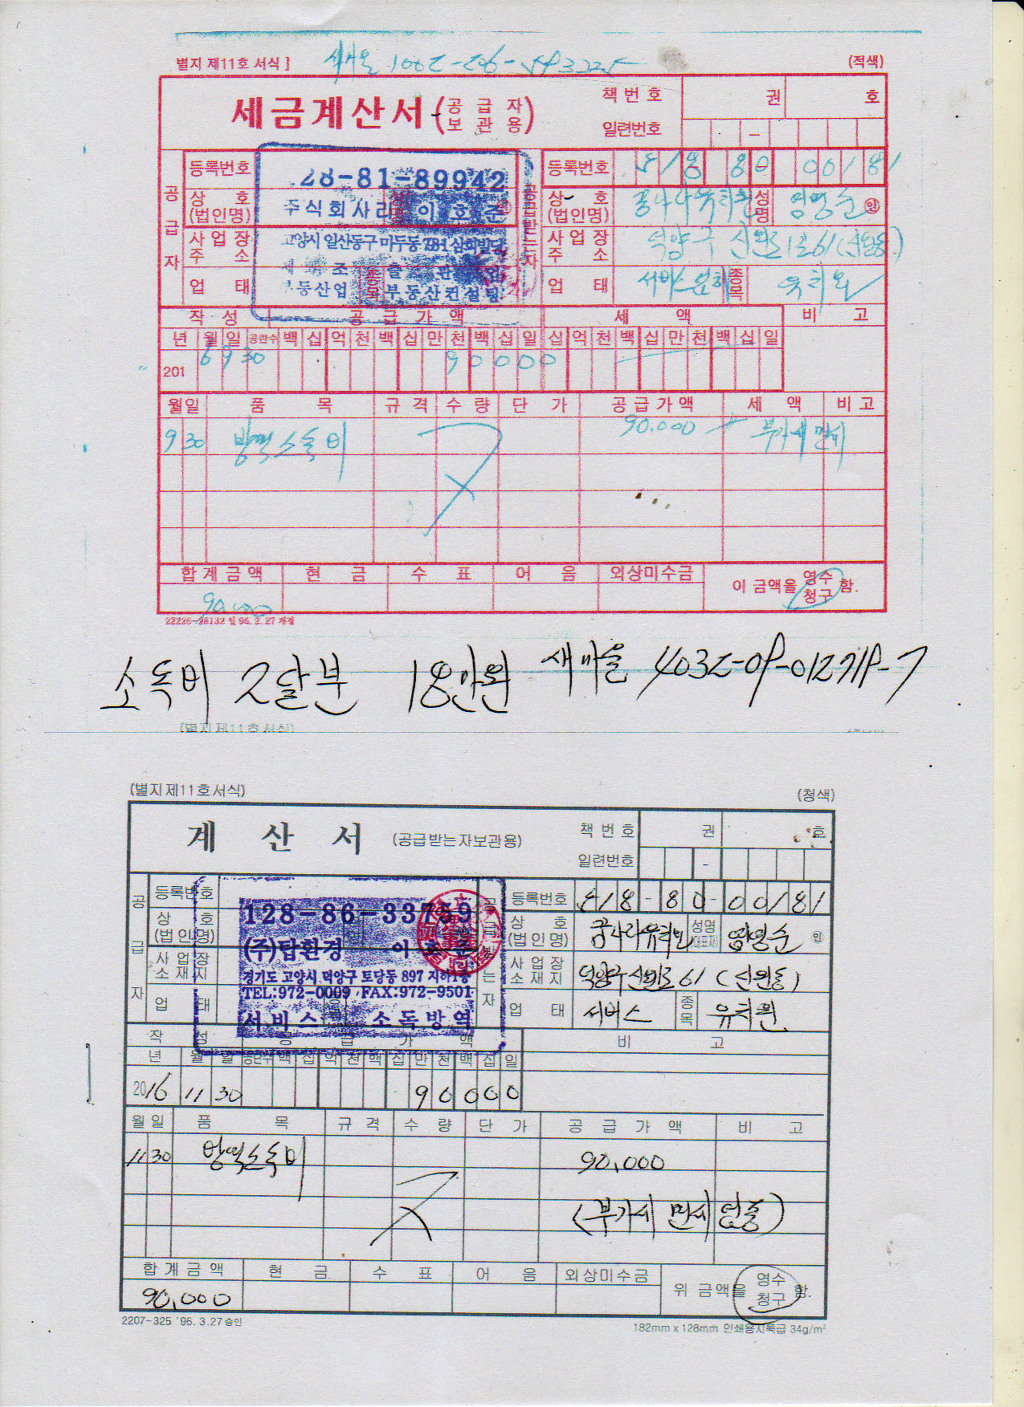 별지 제11호 서식]
(적색)
세금계산서 (공급자 보관용)
책 번 호 권 호
일련번호 -
공급자
등록번호 28-81-89942
상 호 (법인명) 주식회사
사업장 주소 고양시 일산동구 마두동
업 태
부동산업 부동산컨설팅
공급받는자
등록번호 518 80 00181
상 호 (법인명) 꿈나라유치원 성명 염영순 인
사업장 주소 덕양구 신원로 61 (신원동)
업 태 서비스 종목 유치원
작 성 공 급 가 액 세 액 비 고
년 월 일 공란수 백 십 억 천 백 십 만 천 백 십 일 십 억 천 백 십 만 천 백 십 일
201 6 9 30 90000
월일 품 목 규 격 수 량 단 가 공 급 가 액 세 액 비 고
9 30 방역소독비 90.000 부가세 면세
합 계 금 액 현 금 수 표 어 음 외상미수금
이 금액을 영수 청구 함.
90,000
22226-28132 일 96.2.27 개정
소독비 2달분 18만원 새마을
(별지 제11호 서식)
(별지 제11호 서식)
(청색)
계 산 서 (공급받는자보관용)
책 번 호 권 호
일련번호 -
공급자
등록번호 128-86-33789
상 호 (법인명) (주)탑환경
사업장 소재지 경기도 고양시 덕양구 토당동 897 지하1층
TEL:972-0009 FAX:972-9501
업 태 서비스 소독방역
공급받는자
등록번호 518-80-00181
상 호 (법인명) 꿈나라유치원 성명 대표자 염영순 인
사업장 소재지 덕양구 신원로 61 (신원동)
업 태 서비스 종목 유치원
작 성 공 급 가 액 비 고
년 월 일 공란수 백 십 억 천 백 십 만 천 백 십 일
2016 11 30 90000
월일 품 목 규 격 수 량 단 가 공 급 가 액 비 고
11 30 방역소독비 90,000
(부가세 면세 업종)
합 계 금 액 현 금 수 표 어 음 외상미수금
위 금액을 영수 청구 함.
90,000
2207-325 '96.3.27승인
182mm x 128mm 인쇄용지특급 34g/m²